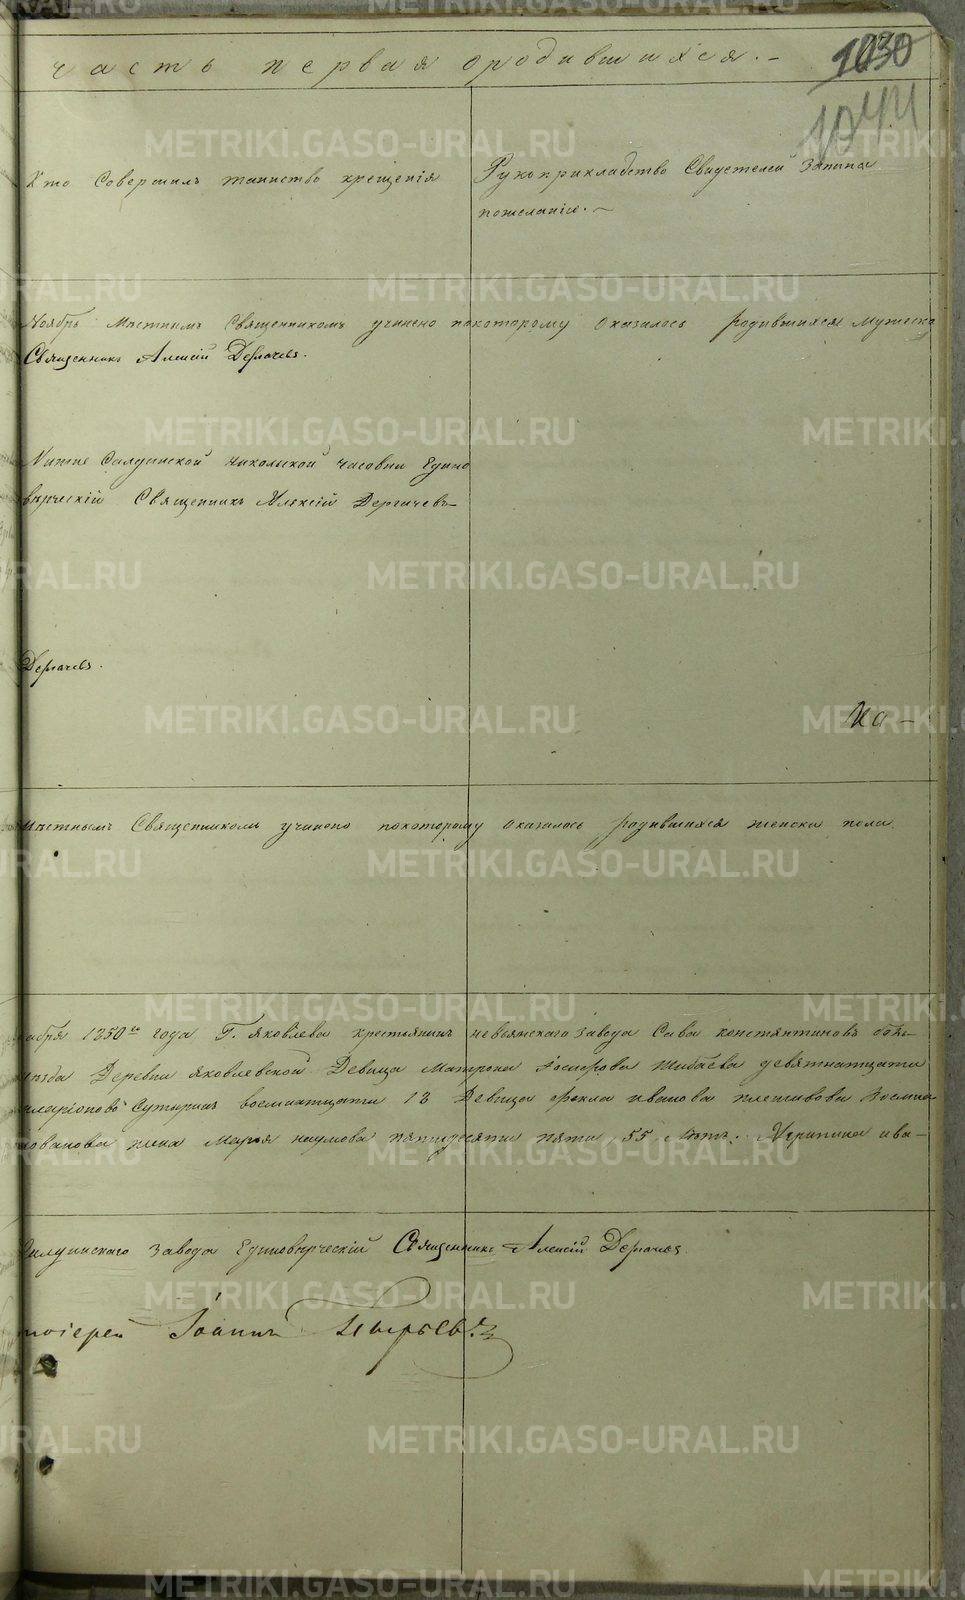 часть первая ородившихся. –
1030
1044
Кто Совершилъ таинство крещенія
Рукоприкладство Свидетелей Записи
пожеланію. –
Ноябрь Местнымъ Священникомъ учинено покоторому Оказалось родившихся мужеска
Священникъ Алексій Дергачевъ.
Нижне Салдинской Никольской часовни Едино
верческій Священникъ Алексій Дергачевъ
Дергачевъ.
На –
местнымъ Священникомъ учинено покоторому Оказалось родившихся женска пола
абря 1850го года Г. Яковлева крестьянинъ невьянскаго завода Сава констянтиновъ
Деревни Яковлевской Девица Матрона Іосифова девятнатцати
Илларіоновъ восмнатцати 18 Девица Фекла иванова Восмна
жена Марья наумова пятидесяти пяти 55 летъ. Агрипина ива–
Салдинскаго завода Единоверческій Священникъ Алексій Дергачевъ
Іоаннъ
METRIKI.GASO-URAL.RU